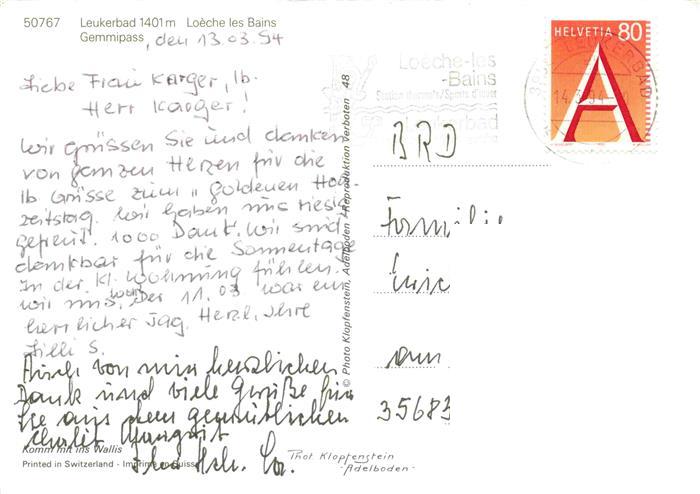 50767 Leukerbad 1401 m Loèche les Bains
Gemmipass, den 13.03.94
Liebe Frau Karger, lb.
Herr Karger!
Wir grüssen Sie und danken
von ganzen Herzen für die
lb Grüsse zum "goldenen Hoch
zeitstag. Wir haben uns riesig
gefreut. 1000 Dank. Wir sind
dankbar für die Sonnentage
In der kl. Wohnung fühlen
wir uns wohl. Der 11.03 war ein
herrlicher Tag. Herzl. Ihre
Lilli S.
Auch von mir herzlichen
Dank und viele Grüße für
Sie aus dem gemütlichen
Chalet
Komm mit ins Wallis
Printed in Switzerland - Imprimé en Suisse
© Photo Klopfenstein, Adelboden - Reproduktion verboten 48
Phot Klopfenstein
-Adelboden-
Loèche-les
-Bains
Leukerbad
HELVETIA 80
A
LEUKERBAD
14.3.94
BRD
Famili
am
35683